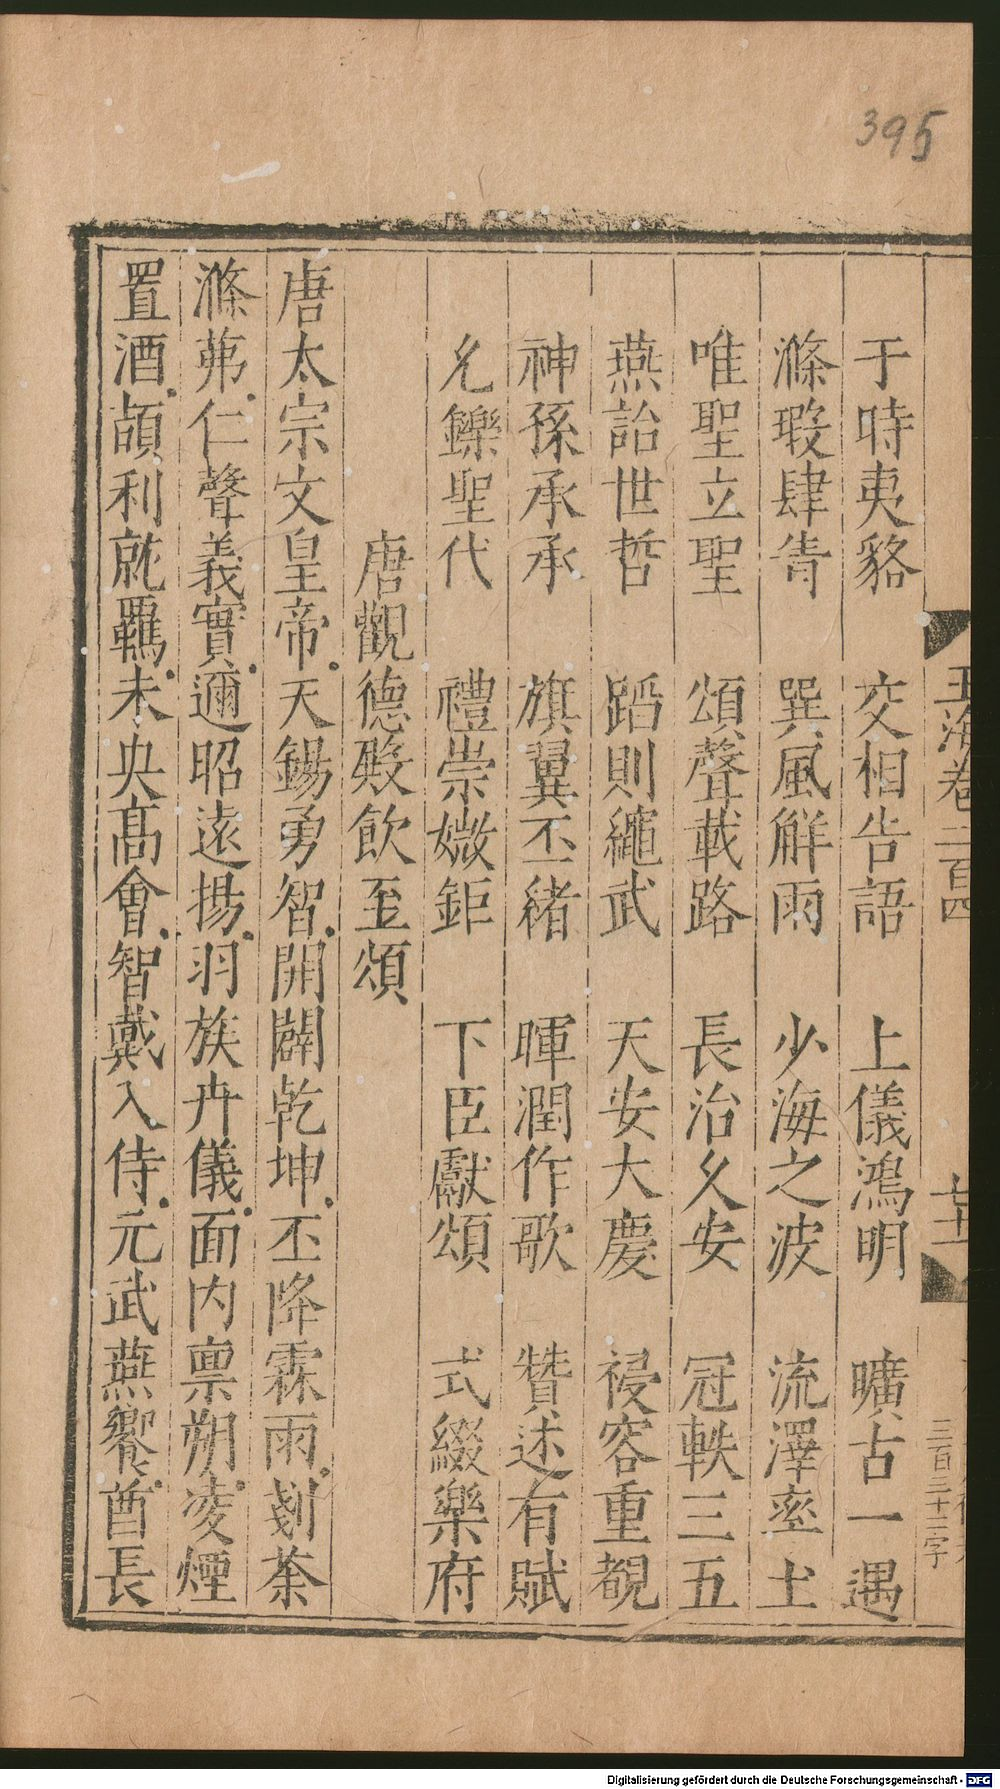 395
玉海卷二百四
三百三十二字
于時夷貉　交相告語　上儀鴻明　曠古一遇
滌瑕肆眚　巽風解雨　少海之波　流澤率土
唯聖立聖　頌聲載路　長治久安　冠軼三五
燕詒世哲　蹈則繩武　天安大慶　祲容重覩
神孫承承　旗翼丕緒　暉潤作歌　贊述有賦
允鑠聖代　禮崇媺鉅　下臣獻頌　式綴樂府
唐觀德殿飲至頌
唐太宗文皇帝天錫勇智開闢乾坤丕降霖雨刬荼
滌茀仁聲義實邇昭遠揚羽族卉儀面内禀朔凌煙
置酒頡利就羈未央髙會智戴入侍元武燕饗酋長
Digitalisierung gefördert durch die Deutsche Forschungsgemeinschaft - DFG